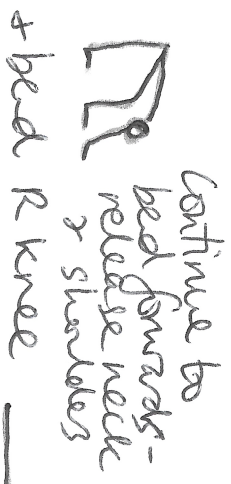 Continue to
bed forwards-
release neck
+ shoulders
+ bed R knee